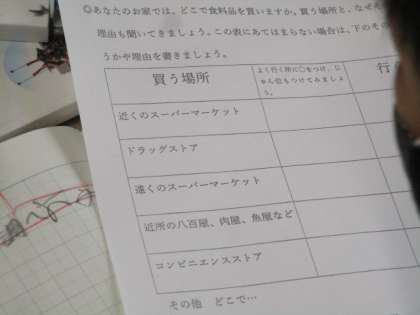 ◎あなたのお家では、どこで食料品を買いますか。買う場所と、なぜそ
理由も聞いてきましょう。この表にあてはまらない場合は、下のその
うかや理由を書きましょう。
買う場所
よく行く所に○をつけ、じ
ゅん位もつけてみましょ
う。
行
近くのスーパーマーケット
ドラッグストア
遠くのスーパーマーケット
近所の八百屋、肉屋、魚屋など
コンビニエンスストア
その他 どこで…